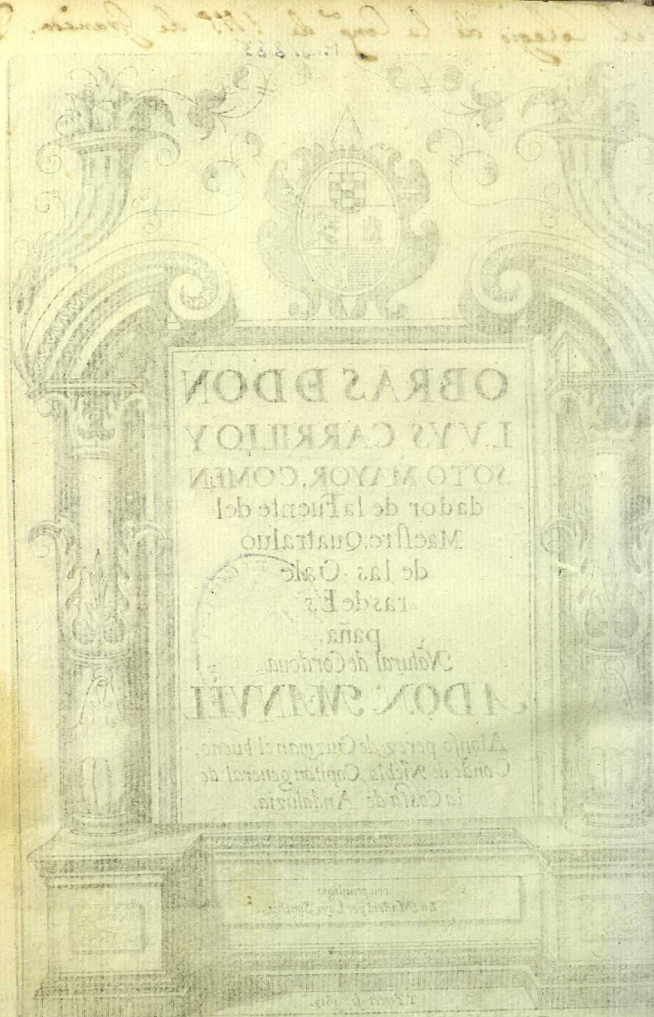 colegio de la Comp.ª de IHS de Granada.
OBRAS DE DON
LVYS CARRILLO Y
SOTO MAYOR, COMEN
dador de la Fuente del
Maestre, Quatraluo
de las Gale
ras de Es
paña.
Natural de Cordoua.
A DON MANVEL
Alonso perez de Guzman el bueno,
Conde de Niebla, Capitan general de
la Costa de Andaluzia.
con priuilegio
En Madrid por Luys Sanchez